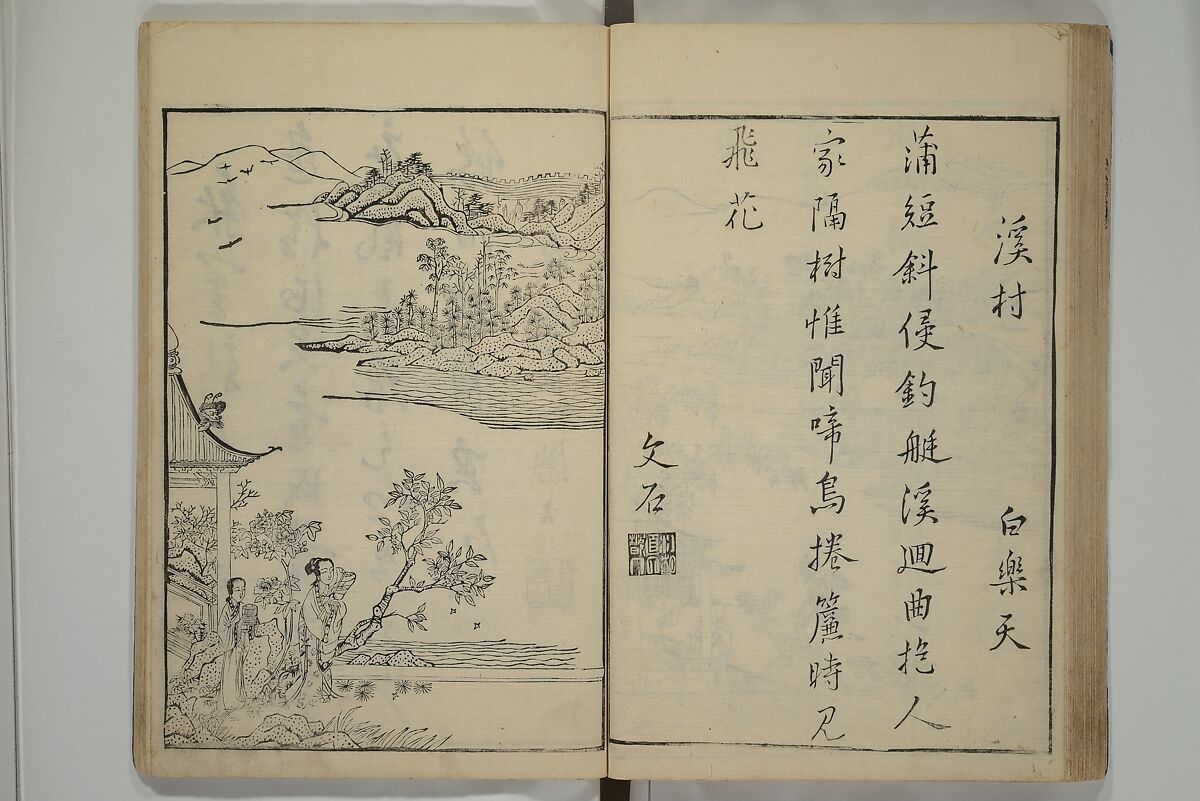 溪村 白樂天
蒲短斜侵釣艇溪迴曲抱人
家隔樹惟聞啼鳥捲簾時見
飛花
文石